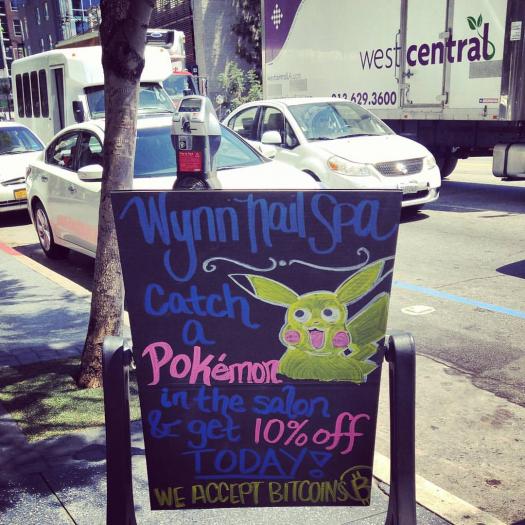 west central
213.629.3600
Wynn Nail Spa
Catch
a
Pokémon
in the salon
& get 10% off
TODAY!
WE ACCEPT BITCOINS